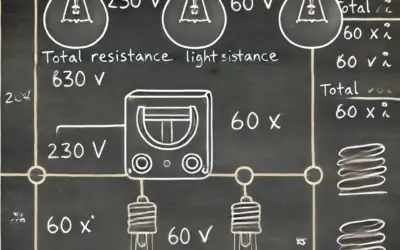 230 V
60 V
Total resistance lightsistance
630 V
230 V
60 X
60 x
60 V
Total
60 x i
60 v i
Total
60 x i